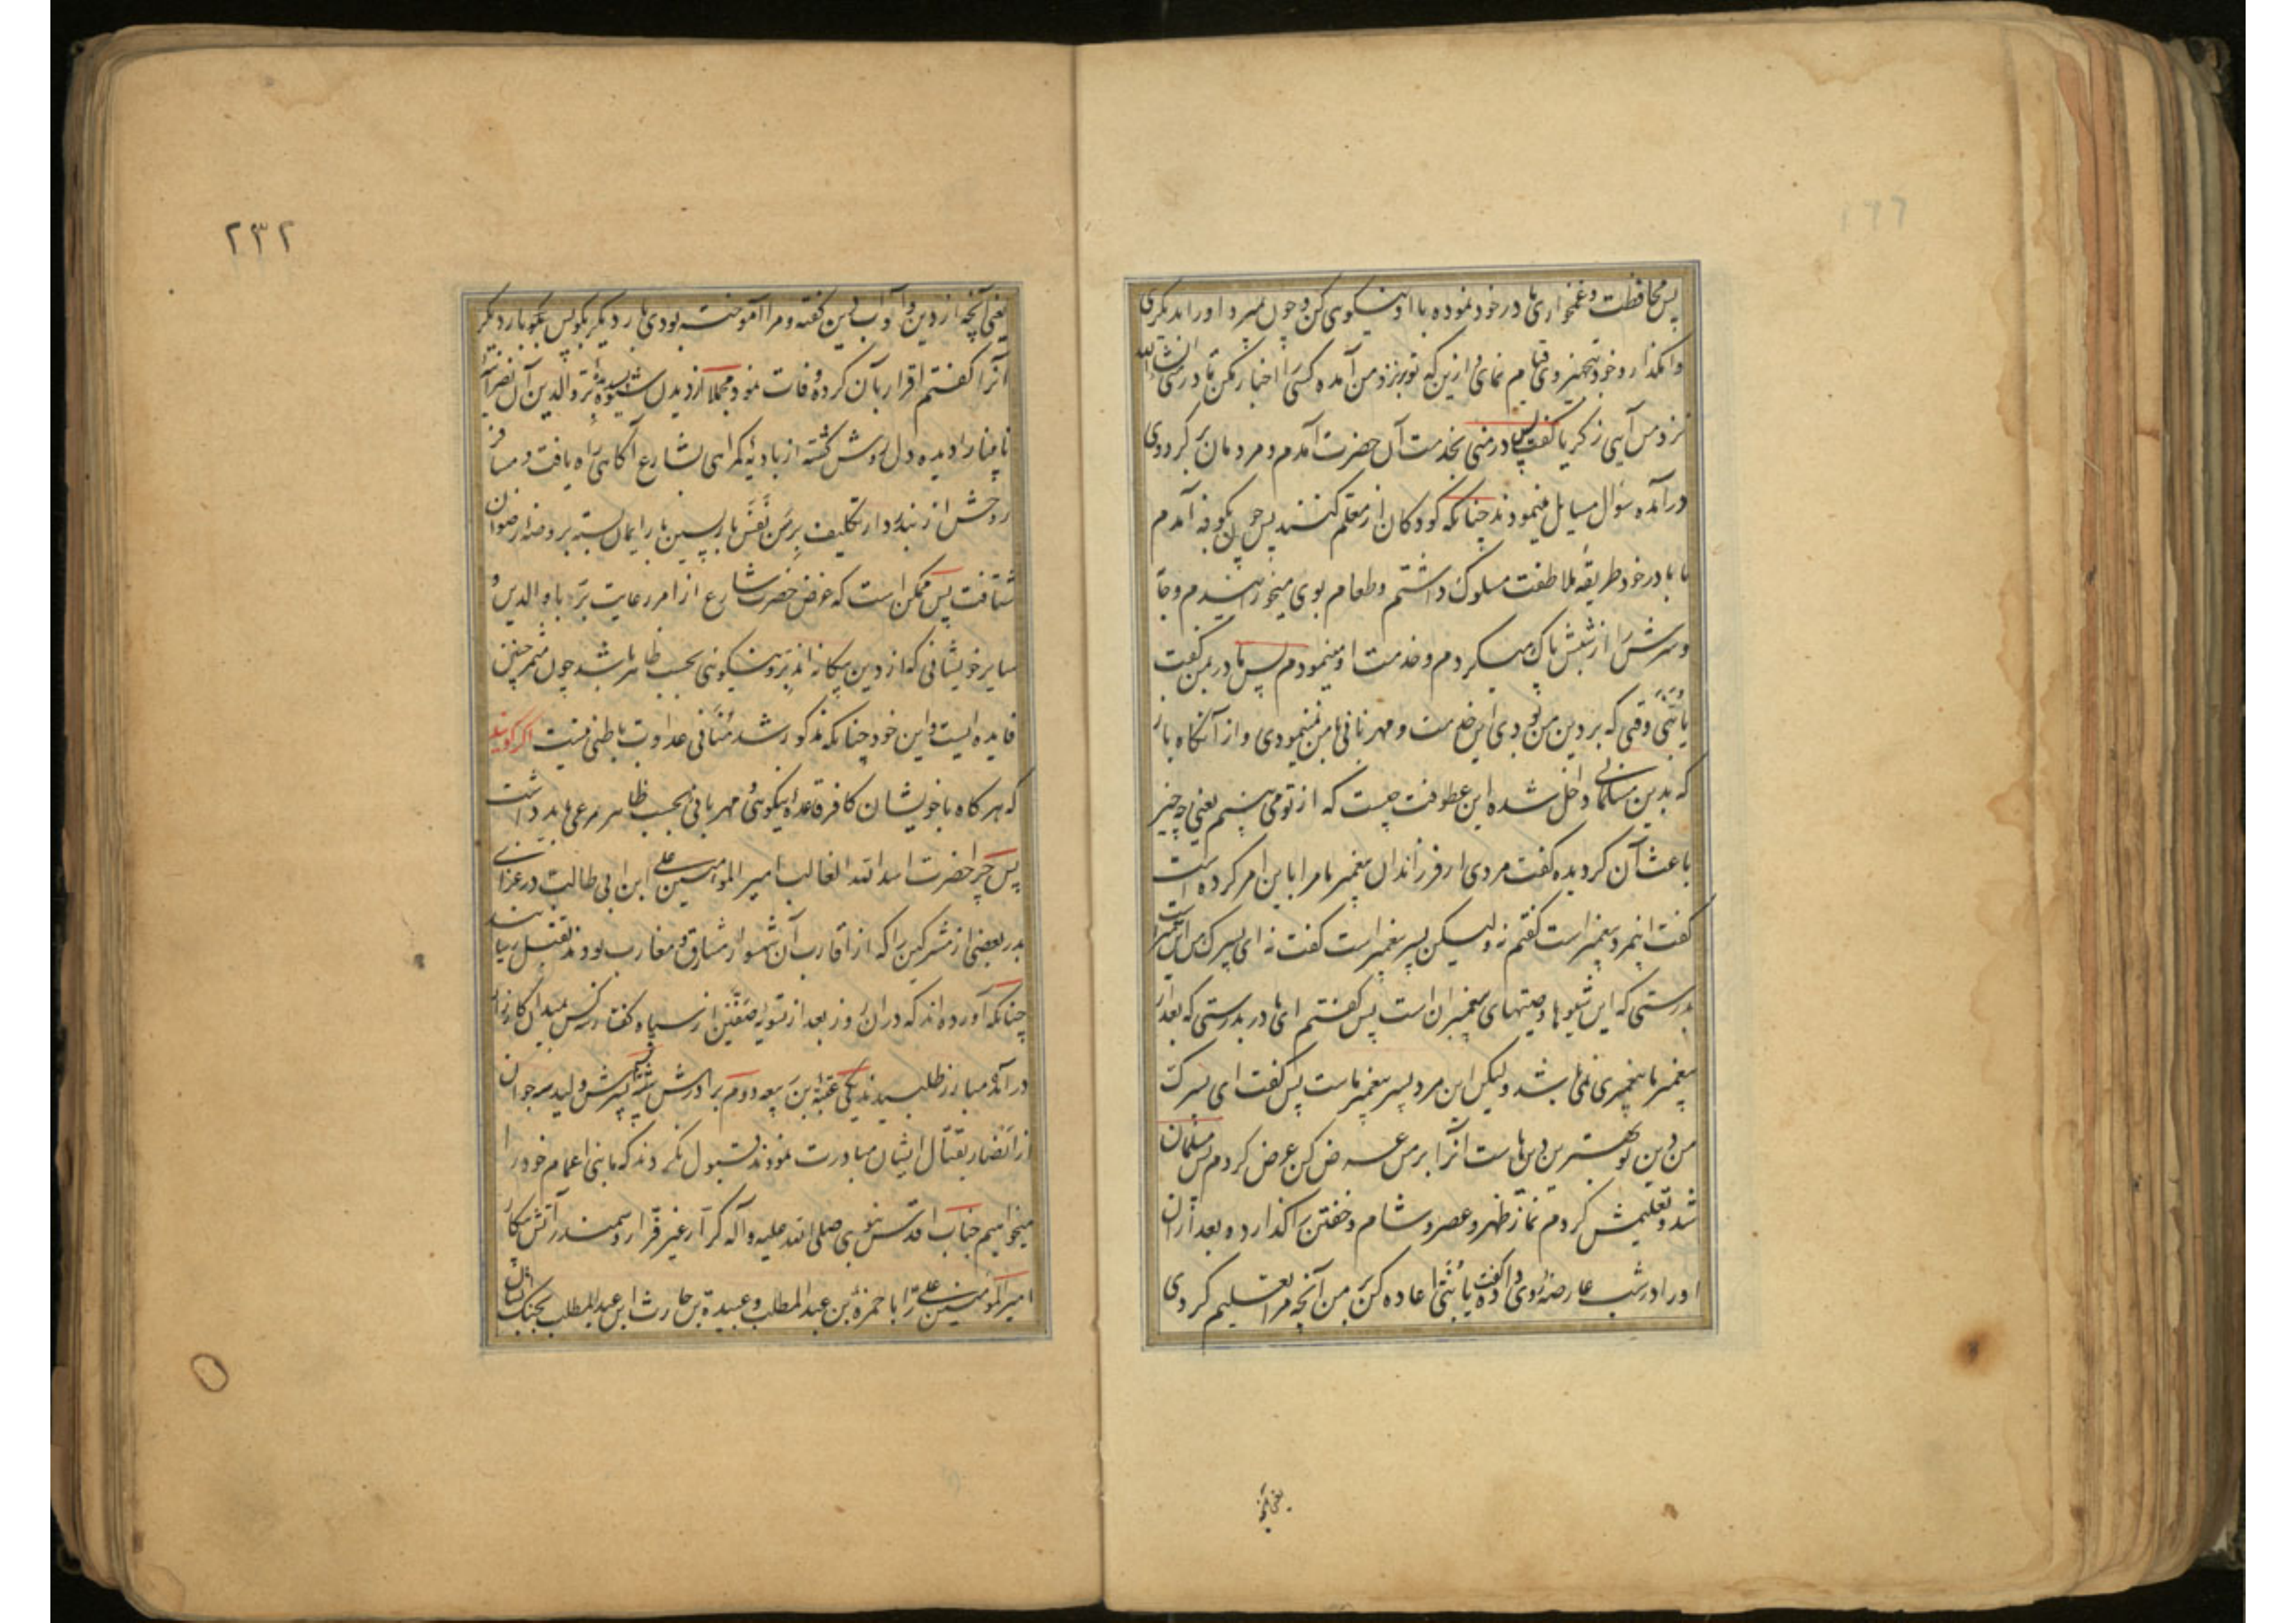 پس محافظت و غمخواری مادر خود نموده با او نیکوئی کن و چون بمیرد او را بدیگری
وامگذار و خود بتجهیز وی قیام نمای و ازین که تو بنزد من آمده کسی را اخبار مکن تا در منی انشاالله
نزد من آیی زکریا گفت پس در منی بخدمت آن حضرت آمدم و مردمان بر گرد وی
درآمده سؤال مسایل مینمودند چنانکه کودکان از معلم کنند پس چون بکوفه آمدم
با مادر خود طریقه ملاطفت مسلوک داشتم و طعام بوی میخورانیدم و جامه
و سرش را از شپش پاک میکردم و خدمت او مینمودم پس مادر بمن گفت
یا بنی وقتی که بر دین من بودی این خدمت و مهربانی با من نمینمودی و از آنگاه باز
که بدین مسلمانی داخل شده این عطوفت چیست که از تو می بینم یعنی چه چیز
باعث آن گردیده گفت مردی از فرزندان پیغمبر ما مرا باین امر کرده است
گفت اینمرد پیغمبر است گفتم نه ولیکن پسر پیغمبر است گفت نه ای پسرک من این پیغمبر است
بدرستی که این شیوها وصیتهای پیغمبران است پس گفتم ای مادر بدرستی که بعد از
پیغمبر ما پیغمبری نمی باشد ولیکن این مرد پسر پیغمبر ماست پس گفت ای پسرک
من دین تو بهترین دینهاست آنرا بر من عرض کن عرض کردم پس مسلمان
شد و تعلیمش کردم نماز ظهر و عصر و شام و خفتن را گذارده بعد از آن
او را در شب عارضه روی داد گفت یا بنی اعاده کن بر من آنچه مرا تعلیم کردی
یعنی آنچه
۲۳۲
یعنی آنچه از دین و آداب این گفته و مرا آموخته بودی بار دیگر بگو پس بگو بار دیگر
آنرا گفتم اقرار بآن کرده وفات نمود مجملا از دیدن شیوه پسندیده بر والدین آن نصرانیه
نابینا را دیده دل روشن گشته از بادیه گمراهی بشارع آگاهی راه یافت و مسافر
روحش از بند دار تکلیف بر من نفس باز پسین بار ایمان بسته بروضه رضوان
شتافت پس ممکن است که غرض حضرت شارع از امر رعایت بر با والدین و
سایر خویشانی که از دین بیگانه اند بر و نیکوئی بحسب ظاهر باشد چون مثمر چنین
فایده ایست و این خود چنانکه مذکور شد منافی عداوت باطنی نیست اگر گویند
که هر گاه با خویشان کافر قاعده نیکوئی و مهربانی بحسب ظاهر مرعی باید داشت
پس چرا حضرت اسد الله الغالب امیر المؤمنین علی ابن ابی طالب در غزای
بدر بعضی از مشرکین را که از اقارب آن شهسوار مشارق و مغارب بودند بقتل رسانید
چنانکه آورده اند که در آن روز بعد از تسویه صفین از سپاه کفار سه کس بمیدان کارزار
درآمده مبارز طلبیدند یکی عتبه ابن ربیعه دوم برادرش شیبه سیم پسرش ولید سه جوان
از انصار بقتال ایشان مبادرت نمودند قبول نکردند که ما بنی اعمام خود را
میخواهیم جناب اقدس نبوی صلی الله علیه و آله کرار غیر فرار سمندر آتش پیکار
امیر المؤمنین علی را با حمزه بن عبد المطلب و عبیدة بن حارث ابن عبد المطلب بجنگ ایشان